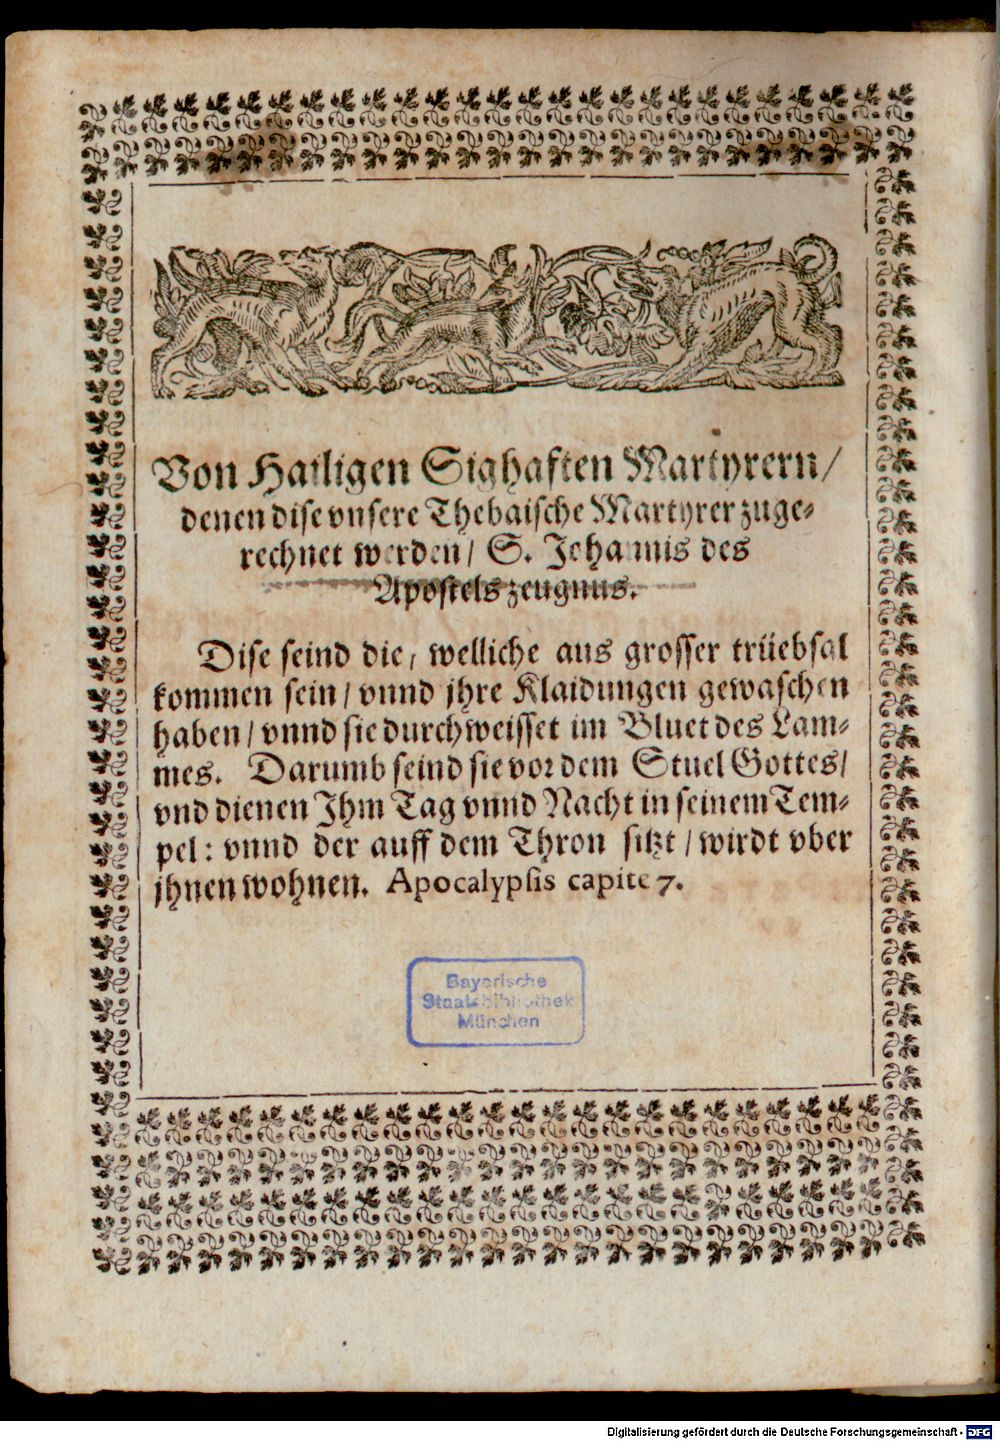 Von Hailigen Sighaften Martyrern/
denen dise vnsere Thebaische Martyrer zuge⸗
rechnet werden/ S. Johannis des
Apostels zeugnus.
Dise seind die, welliche aus grosser trüebsal
kommen sein/ vnnd jhre Klaidungen gewaschen
haben/ vnnd sie durchweisset im Bluet des Lam⸗
mes. Darumb seind sie vor dem Stuel Gottes/
vnd dienen Ihm Tag vnnd Nacht in seinem Tem⸗
pel: vnnd der auff dem Thron sitzt/ wirdt vber
jhnen wohnen. Apocalypsis capite 7.
Bayerische
Staatsbibliothek
München
Digitalisierung gefördert durch die Deutsche Forschungsgemeinschaft - DFG